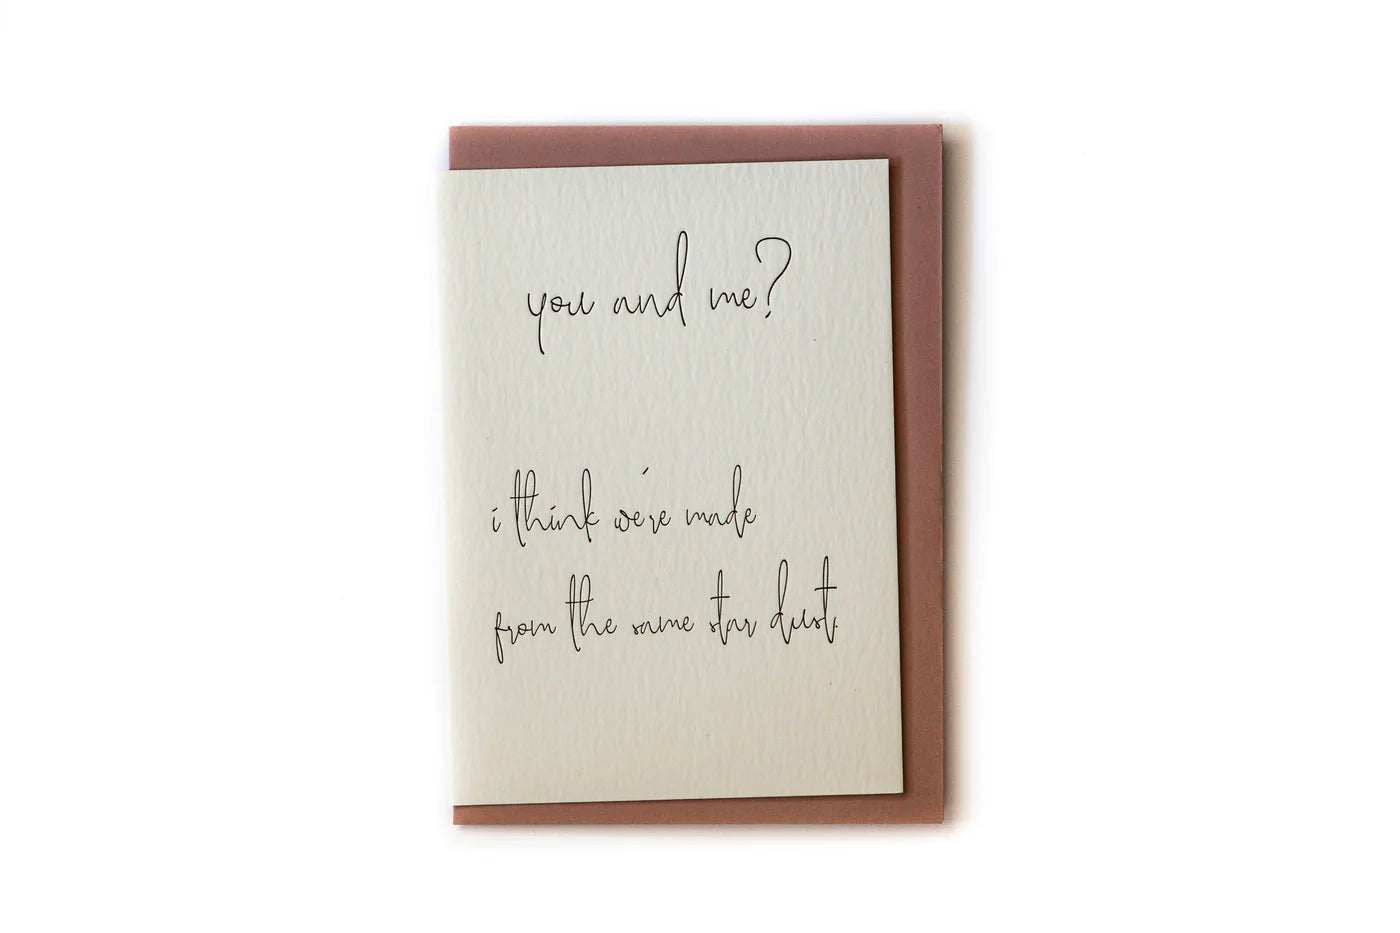 you and me?
i think we're made
from the same star dust.